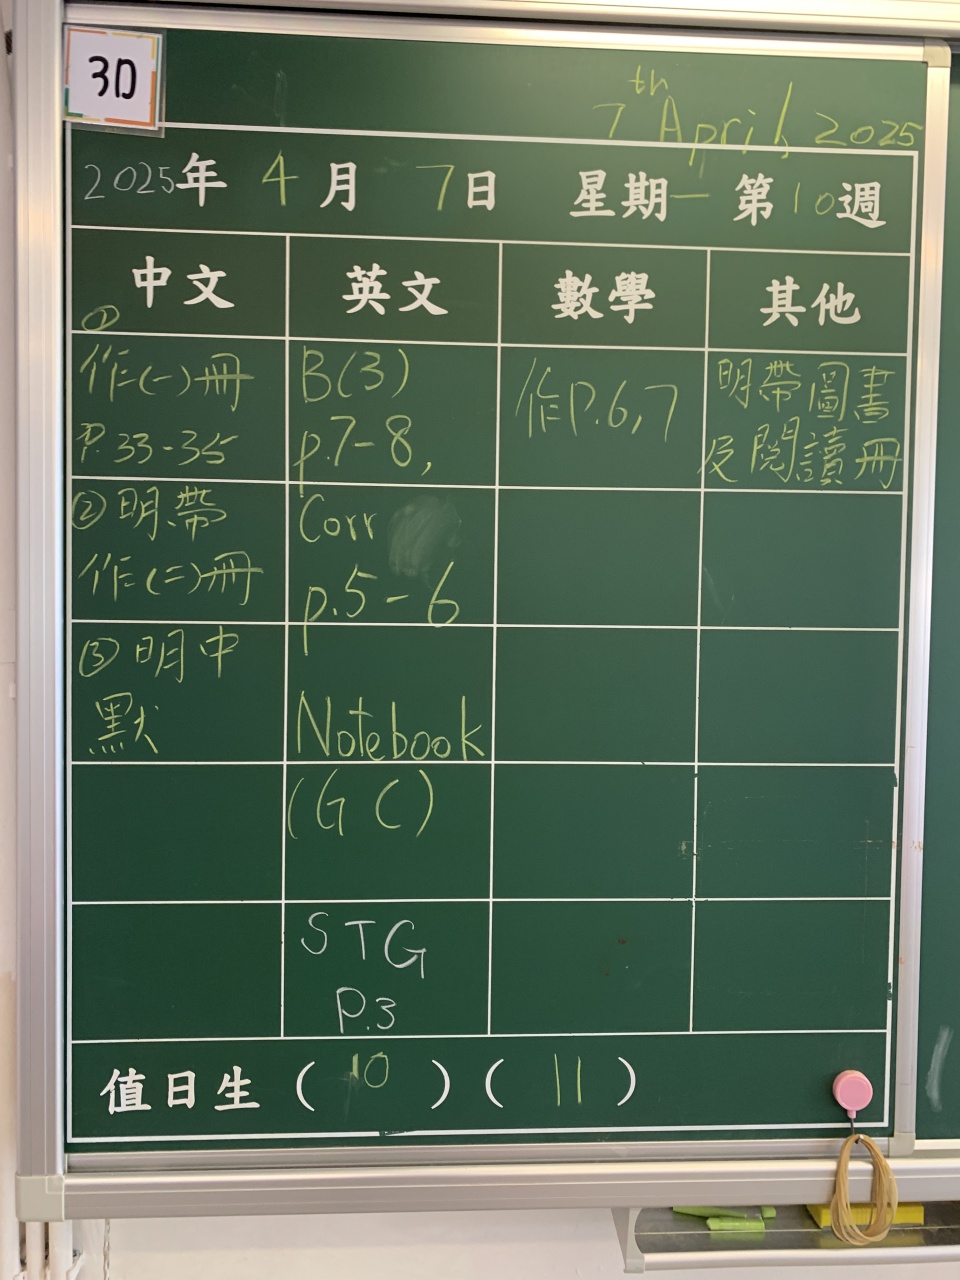 3D
7th April, 2025
2025年 4月 7日 星期一 第10週
中文 英文 數學 其他
①
作(一)冊
P.33-35
②明帶
作(二)冊
③明中
默
B(3)
p.7-8,
Corr
p.5-6
Notebook
(GC)
STG
P.3
作P.6,7
明帶圖書
及閱讀冊
值日生 ( 10 ) ( 11 )